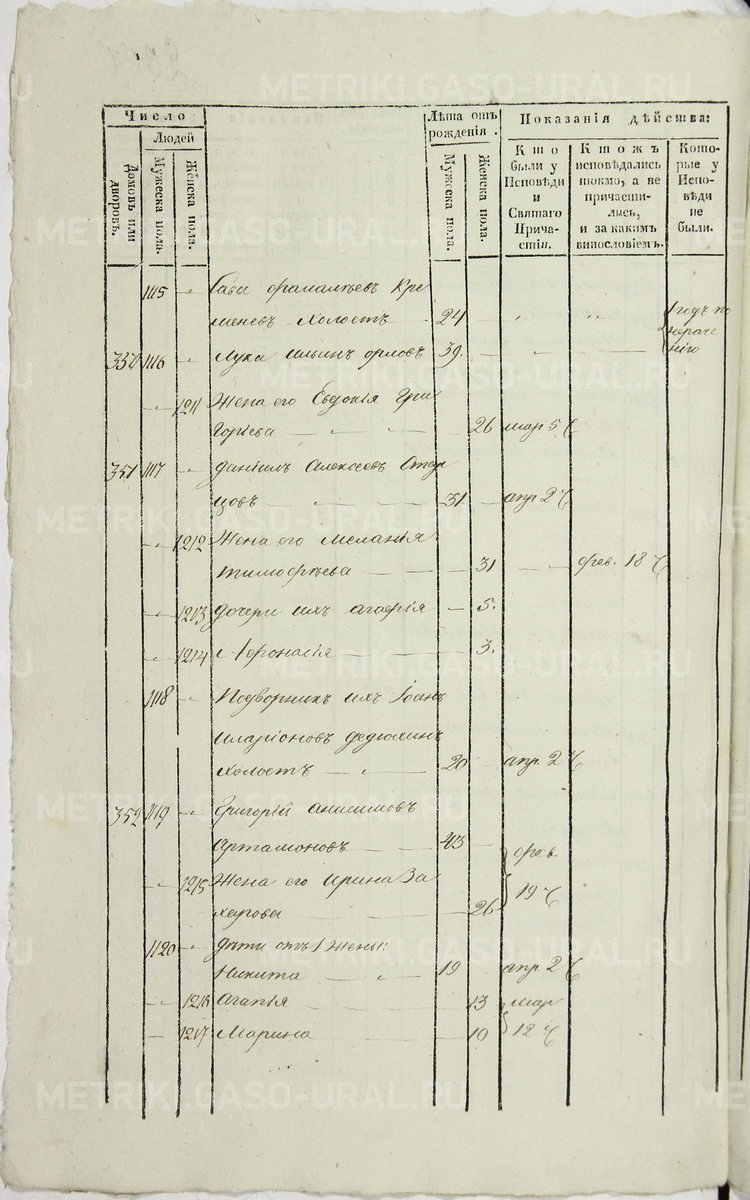 METRIKI.GASO-URAL.RU
Число
Людей
Домовъ или дворовъ.
Мужеска пола.
Женска пола.
Лѣта отъ рожденія.
Мужеска пола.
Женска пола.
Показанія дѣйства:
Кто были у Исповѣди и Святаго Причастія.
Ктожъ исповѣдались токмо, а не причастились, и за какимъ винословіемъ.
Которые у Исповѣди не были.
1115 Савв Кре
меневъ Холостъ 24 1 годъ по
1116 Лука Ильинъ орловъ 39 нераче
нію
1211 Жена его Евдокія Гри
горіева 26 мар 5
351 1117 Даніилъ Алексеевъ
цовъ 31 апр 2
1212 Жена его Меланія
тимофѣева 31 фев. 18
1213 дочери ихъ агафія 5.
1214 Афонасія 3.
1118 Подворникъ ихъ Іоанъ
иларіоновъ федюхинъ
холостъ 20 апр 2
352 1119 Григорій анисимовъ
Артамоновъ 43 фев
1215 Жена его Ирина За 19
харова 26
1120 дѣти отъ 1 жены:
Никита 19 апр 2
1216 Агапія 13 мар
1217 Марина 10 12